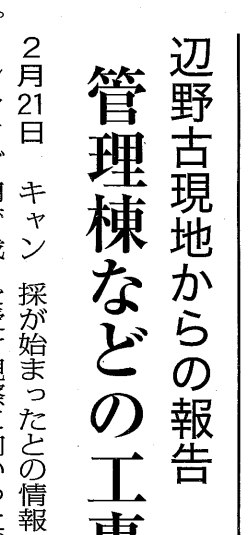 辺野古現地からの報告
管理棟などの工事
2月21日 キャン
採が始まったとの情報